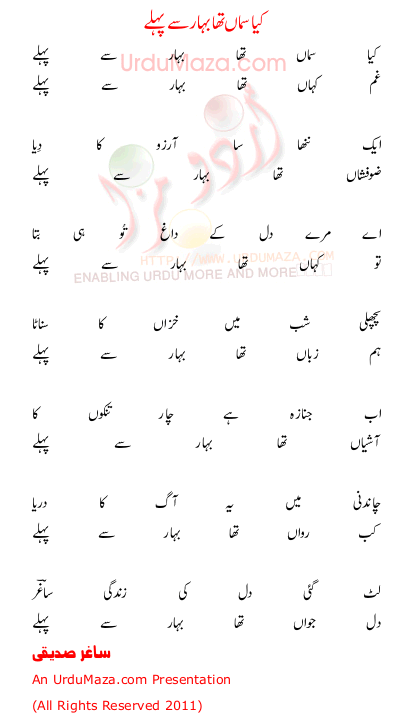 کیا سماں تھا بہار سے پہلے
کیا سماں تھا بہار سے پہلے
غم کہاں تھا بہار سے پہلے
UrduMaza.com
اردو مزا
ایک ننھا سا آرزو کا دِیا
ضوفشاں تھا بہار سے پہلے
اے مرے دل کے داغ تُو ہی بتا
تو کہاں تھا بہار سے پہلے
HTTP://WWW.URDUMAZA.COM
ENABLING URDU MORE AND MORE
پچھلی شب میں خزاں کا سناٹا
ہم زباں تھا بہار سے پہلے
اب جنازہ ہے چار تنکوں کا
آشیاں تھا بہار سے پہلے
چاندنی میں یہ آگ کا دریا
کب رواں تھا بہار سے پہلے
لٹ گئی دل کی زندگی ساغرؔ
دل جواں تھا بہار سے پہلے
ساغر صدیقی
An UrduMaza.com Presentation
(All Rights Reserved 2011)